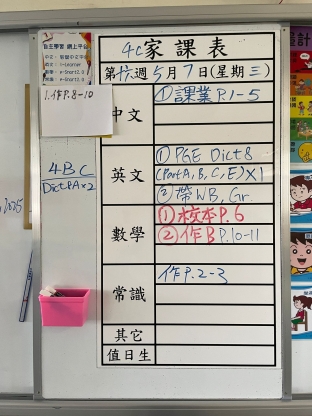 自主學習 網上平台
1. 作P.8-10
4BC
Dict P.A×2
2025
4C家課表
第廿六週5月7日(星期三)
中文
①課業P.1-5
英文
① PGE Dict 8
(Part A, B, C, E)×1
② 帶WB, Gr.
數學
①校本P.6
②作B P.10-11
常識
作P.2-3
其它
值日生